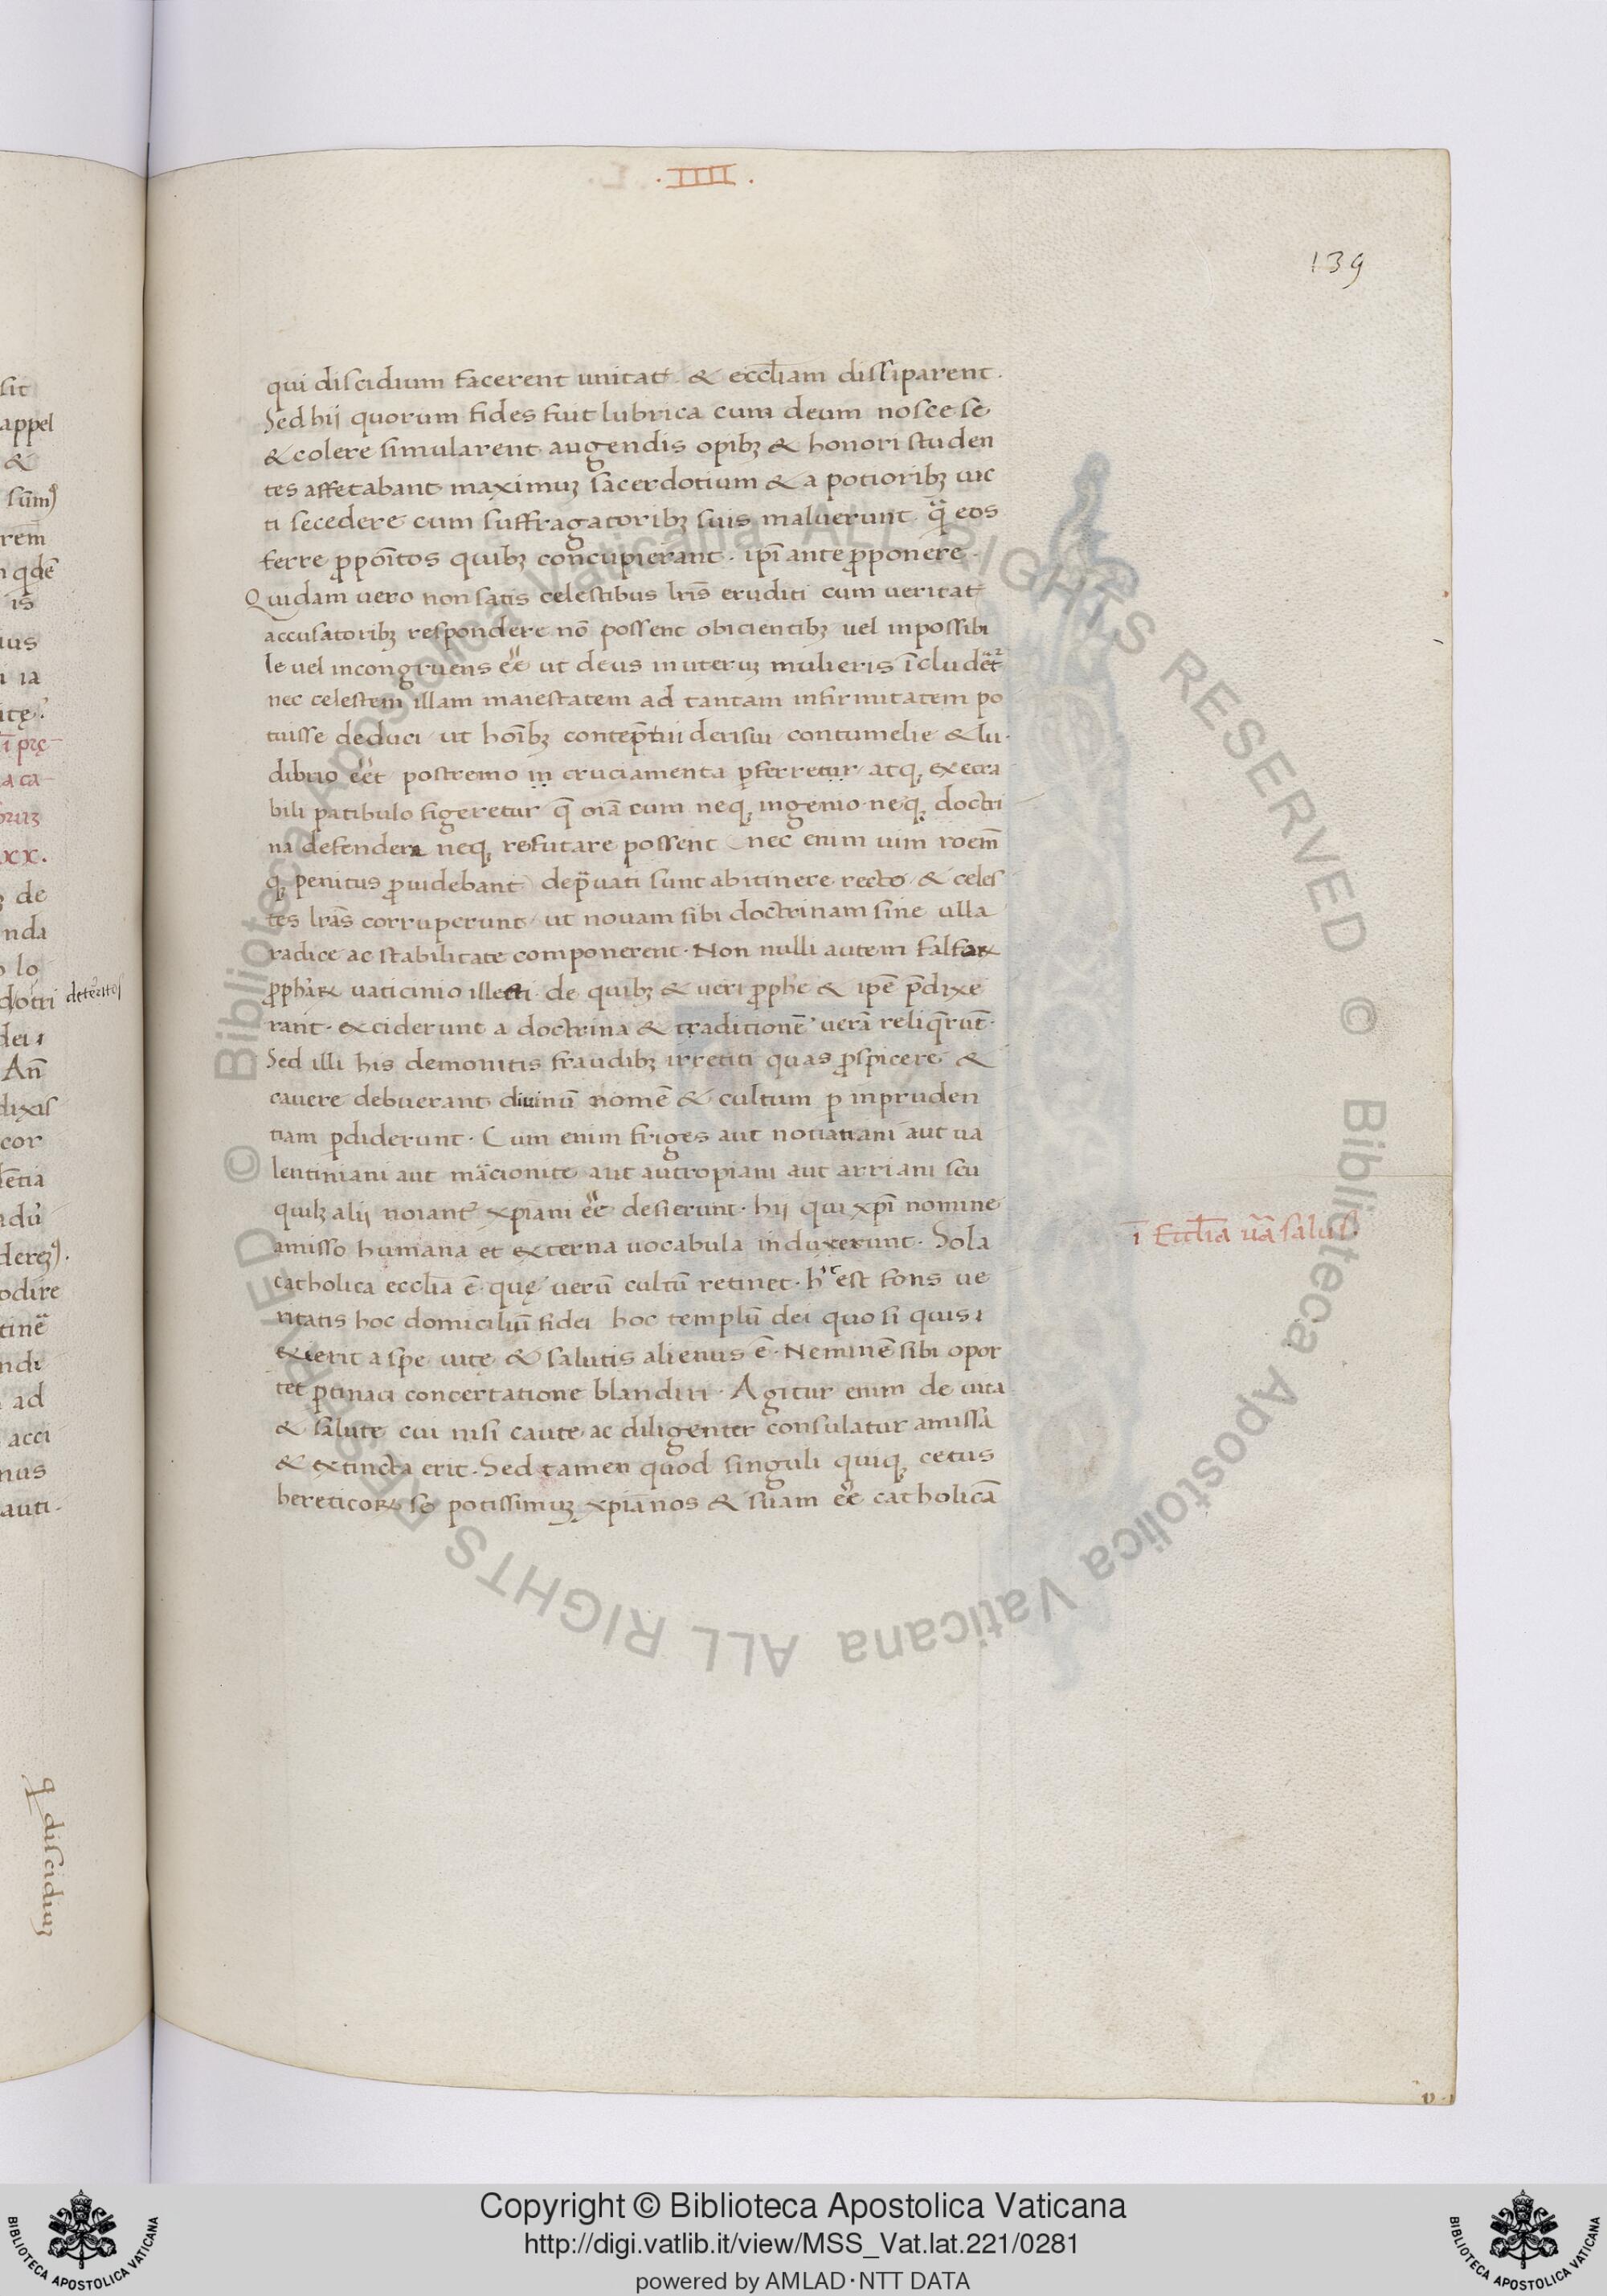 .IIII.
139
qui discidium facerent unitat̄. & eccl̄iam dissiparent.
Sed hij quorum fides fuit lubrica cum deum nosce se
& colere simularent augendis opibꝫ & honori studen
tes affetabant maximuꝫ sacerdotium & a potioribꝫ uic
ti secedere cum suffragatoribꝫ suis maluerunt. qᷓ eos
ferre p̄poītos quibꝫ concupierant. ip̄i ante p̄ponere.
Quidam uero non satis celestibus lr̄is eruditi cum ueritat̄
accusatoribꝫ respondere nō possent obicientibꝫ uel inpossibi
le uel incongruens eē ut deus in uteruꝫ mulieris īcludet̄
nec celestem illam maiestatem ad tantam infirmitatem po
tuisse deduci ut hoībꝫ contēptui derisui contumelie & lu
dibrio eēt postremo in cruciamenta ꝑferretur atqꝫ execra
bili patibulo figeretur q̄ oīa cum neqꝫ ingenio neqꝫ doctri
na defendere neqꝫ refutare possent nec enim uim roem̄
qꝫ penitus ꝓuidebant dep̄uati sunt ab itinere recto & celes
tes lr̄as corruperunt ut nouam sibi doctrinam sine ulla
radice ac stabilitate componerent. Non nulli autem falsoꝝ
ꝓphāꝝ uaticinio illecti de quibꝫ & ueri ꝓphe & ip̄e p̄dixe
rant. exciderunt a doctrina & traditionē uerā reliq̄rūt.
Sed illi his demonitis fraudibꝫ irretiti quas ꝓspicere &
cauere debuerant diuinū nomē & cultum ꝑ inpruden
tiam ꝑdiderunt. Cum enim friges aut notiatiani aut ua
lentiniani aut marcionite aut autropiani aut arriani seu
quilꝫ alij noiant᷑ xp̄iani eē desierunt. hij qui xp̄i nomine
amisso humana et externa uocabula induxerunt. Sola
catholica eccl̄ia ē quę uerū cultū retinet. hic est fons ue
ritatis hoc domiciliū fidei hoc templū dei quo si quis ı
exierit a spe uite & salutis alienus ē. Neminē sibi opor
tet ꝑtinaci concertatione blandiri. Agitur enim de uita
& salute cui nisi caute ac diligenter consulatur amissa
& extincta erit. Sed tamen quod singuli quiqꝫ cetus
hereticoꝝ se potissimuꝫ xp̄ianos & suam eē catholicā
ī Eccl̄ia ūa salus.
detēritos
ꝗ discidiuꝫ
Copyright © Biblioteca Apostolica Vaticana
http://digi.vatlib.it/view/MSS_Vat.lat.221/0281
powered by AMLAD·NTT DATA
BIBLIOTECA APOSTOLICA VATICANA
BIBLIOTECA APOSTOLICA VATICANA
© Biblioteca Apostolica Vaticana ALL RIGHTS RESERVED © Biblioteca Apostolica Vaticana ALL RIGHTS RESERVED